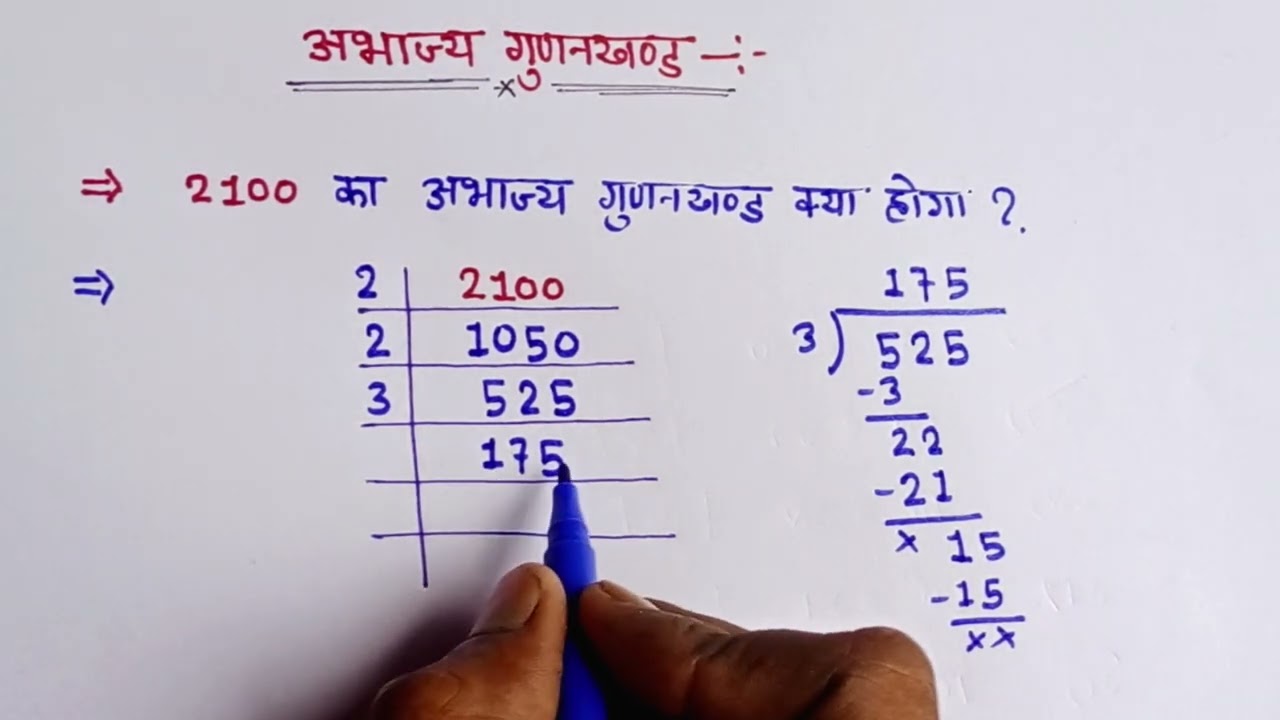 अभाज्य गुणनखण्ड -:-
×
⇒ 2100 का अभाज्य गुणनखण्ड क्या होगा ?.
⇒
2 | 2100
2 | 1050
3 | 525
175
175
3 ) 525
-3
22
-21
× 15
-15
××